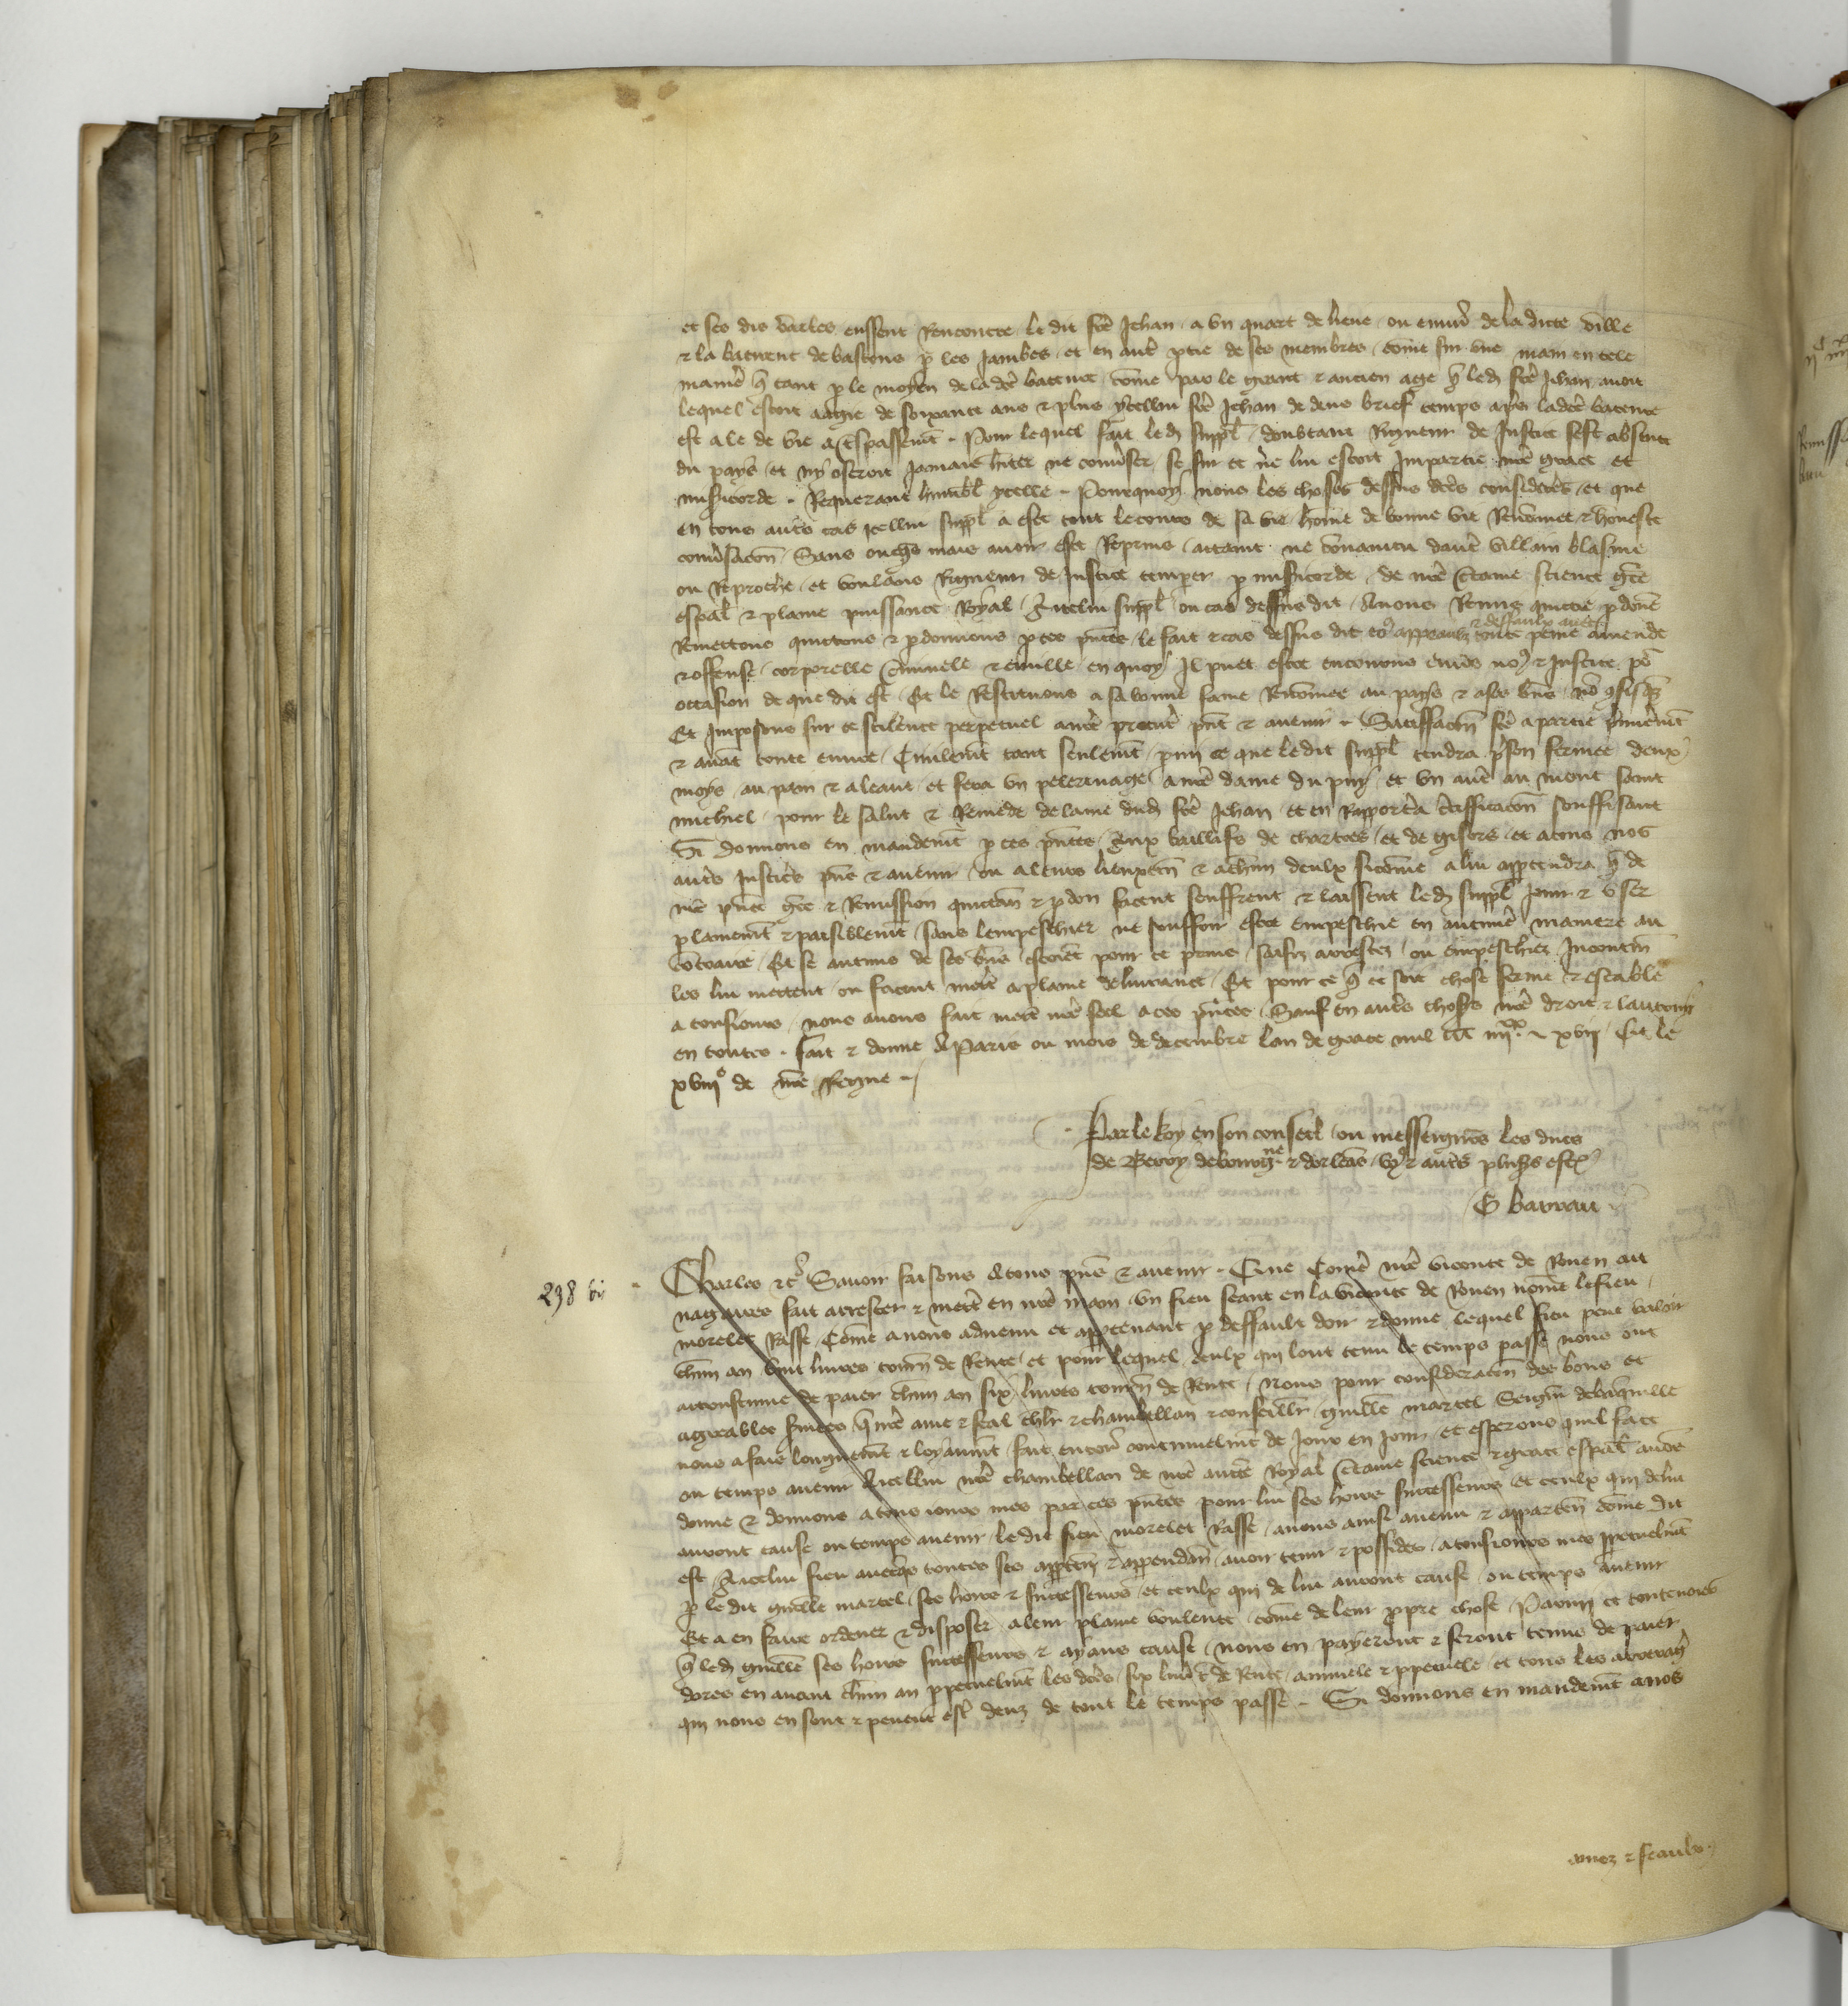 et ses dis varles eussent rencontre le dit fre Jehan a un quart de lieue ou envir de la dicte ville
et la batirent de bastons p les jambes et en autre ptie de ses membres come sur une main en tele
maniere q tant p le moyen de la dce bateure come par le grant et ancien age q led fre Jehan avoit
lequel estoit aagie de soixante ans et plus ycellui fre Jehan de dens brief temps apres ladce bateure
est ale de vie a trespassemt. Pour lequel fait led suppl doubtant rigueur de justice sest absente
du pays et ny oseroit jamais hiter ne converser se sur ce ne lui estoit impartie nre grace et
misericorde. Requerant humblt ycelle. Pourquoy nous les choses dessus dces considerees et que
en tous autres cas icellui suppl a este tout le cours de sa vie home de bonne vie renommee et honeste
conversacon sans onques mais avoir este reprins attaint ne convaincu daucun villain blasme
ou reproche et voulans rigueur de justice temper p misericorde de nre certaine science gce
espal et plaine puissance royal A icelui suppl ou cas dessus dit avons remis quicte pdonne
remettons quittons et pdonnons p ces pntes le fait et cas dessus dit et deffaulx avec toute peine amende
et offense corporelle criminele et civille en quoy il puet estre encouru envers nous et justice po
occasion de que dit est et le restituons a sa bonne fame renommee au pays et a ses biens no confisqz
Et imposons sur ce scilence perpetuel a nre procur pnt et avenir. Satisfacon fce a partie premieremt
et avant toute euvre civilemt tant seulemt pmi ce que le dit suppl tendra prison fermee deux
moys au pain et a leaue et fera un pelerinage a nre dame du puy et un autre au mont saint
michiel pour le salut et remede de lame dud fre Jehan et en rapportera certifficacon souffisant
Si donnons en mandemt p ces pntes Aux baillifs de chartres et de gisors et a tous nos
autres justiciers pns et avenir ou a leurs lieuxten et a chun deulx si come a lui apptendra q de
nre pnte gce et remission quictan et pdon facent seuffrent et laissent led suppl joir et user
plainemt et paisiblemt sans lempeschier ne souffrir estre empeschie en aucune maniere au
contraire Et se aucuns de ses biens estoiet pour ce prins saisiz arrestez ou empeschiez incontin
les lui mettent ou facent mettre a plaine delivrance Et pour ce q ce soit chose ferme et estable
a tousjours nous avons fait mettre nre seel a ces pntes Sauf en autres choses nre droit et lautrui
en toutes. Fait et donne A Paris ou mois de decembre lan de grace mil ccc iiijxx et xvij Et le
xviije de nre regne.
Par le Roy en son conseil ou messeigneurs les ducs
de Berry de bourgne et dorleans vo et autres plus estz
G barrau
298 bis
Charles etc Savoir faisons A tous pns et avenir. Que come nre viconte de Rouen ait
nagaires fait arrester et mettre en nre main un fieu seant en la viconte de Rouen nome le fieu
morelet Basse come a nous advenu et apptenant p deffault doir et donne lequel fieu peut valoir
chun an vint livres tourn de rente et pour lequel ceulx qui lont tenu le temps passe nous ont
acoustume de paier chun an six livres tourn de rente Nous pour consideracon des bons et
agreables services q nre ame et feal chlr et chambellan et conseillr guille martel seignr de baqueville
nous a fais longuemt et loyaumt fait encor continuelmt de jour en jour et esperons quil face
ou temps avenir A icellui nre chambellan de nre aucte royal certaine science et grace espal avons
donne et donnons a tous jours mes par ces pntes pour lui ses hoirs successeurs et ceulx qui de lui
auront cause ou temps avenir le dit fieu morelet Basse a nous ainsi avenu et apparten come dit
est Icelui fieu avecqs toutes ses appten et appendan avoir tenir et posseder a tousjours mes ppetuelmt
p le dit guille martel ses hoirs et successeurs et ceulx qui de lui auront cause ou temps avenir
Et a en faire ordener et disposer a leur plaine voulente come de leur ppre chose Parmi ce toutevoies
q led guille ses hoirs successeurs et ayans cause nous en payeront et seront tenus de paier
dores en avant chun an ppetuelmt les dces six livr t de rente annuele et ppetuele et tous les arrerag
qui nous en sont et peuent est deuz de tout le temps passe. Si donnons en mandemt a nos
amez et feaulx